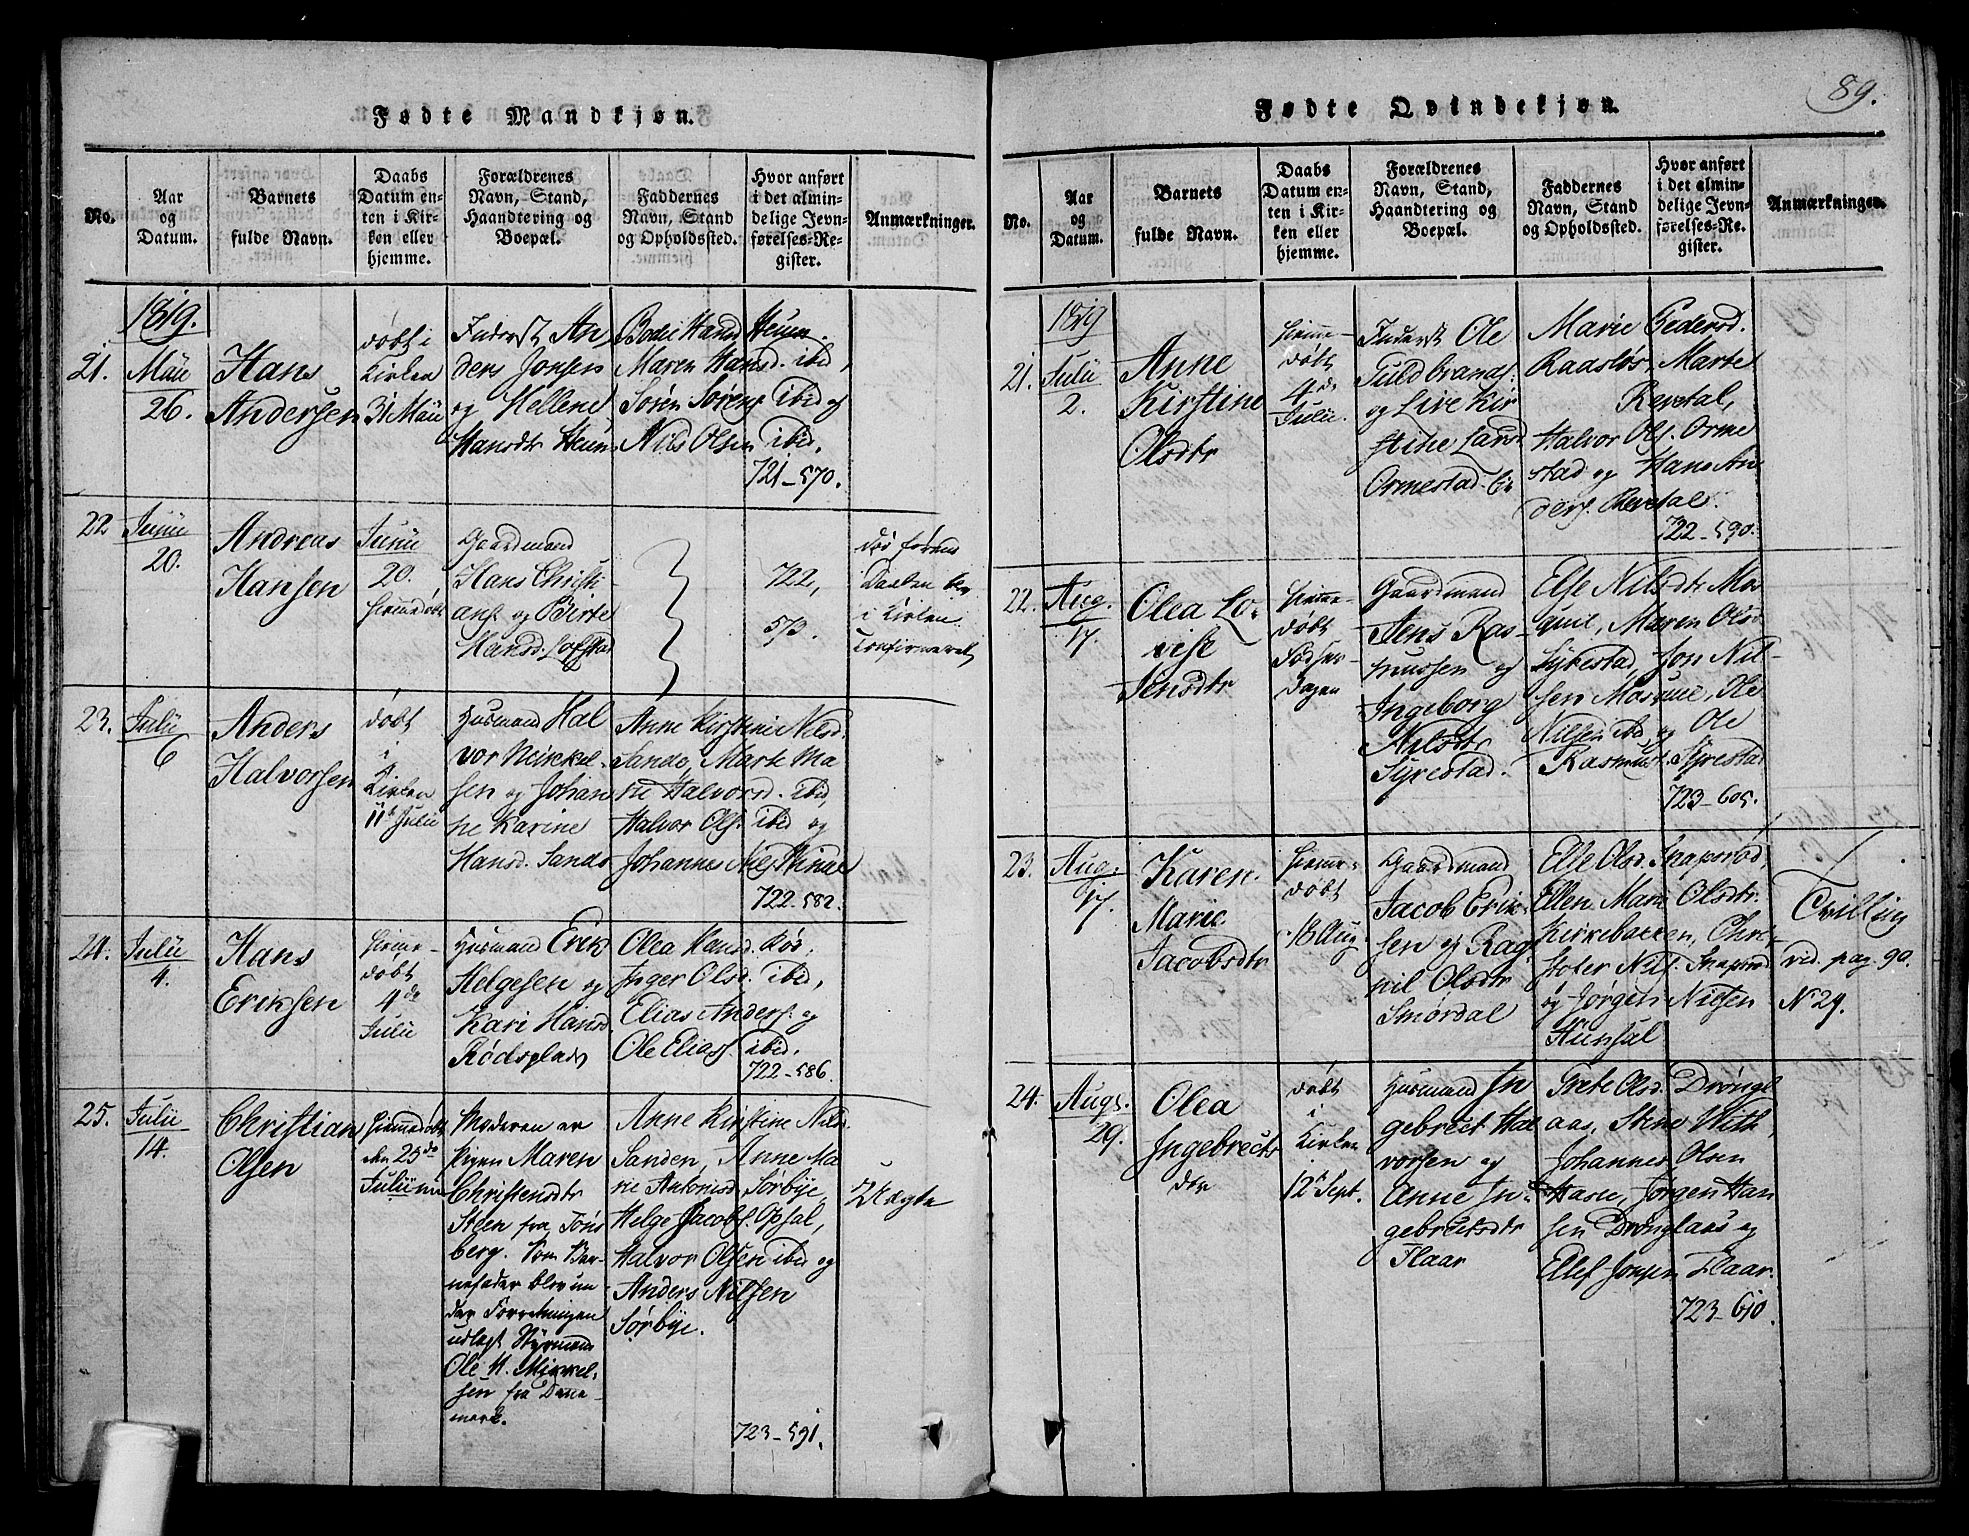 89.
Fødte Mandkjøn.
No.
Aar
og
Datum.
Barnets
fulde Navn.
Daabs
Datum en-
ten i Kir-
ken eller
hjemme.
Forældrenes
Navn, Stand,
Haandtering og
Boepæl.
Faddernes
Navn, Stand
og Opholdssted.
Hvor anført
i det almin-
delige Jevn-
førelses-Re-
gister.
Anmærkninger.
1819.
21.
Maii
26.
Hans
Andersen
døbt i
Kirken
31 Maii
Inderst An
ders Jonsen
og Hellene
Hansdtr Heum
Bodil Hansd. Heum.
Maren Hansd. ibid,
Søren Sørens. ibid og
Nils Olsen ibid.
721-570.
22
Junii
20.
Andreas
Hansen
Junii
20.
hiemedøbt
Gaardmand
Hans Christi-
ans. og Birte
Hansd. Lofstad
722,
573.
døe førend
Daaben blev
i Kirken
Confirmeret
23.
Julii
6
Anders
Halvorsen
døbt
i
Kirken
11te Julii
Huusmand Hal
vor Mickel-
sen og Johan
ne Karine
Hansd. Sande
Anne Kirstine Nilsd.
Sande, Marte Ma-
rie Halvorsd. ibid,
Halvor Ols. ibid og
Johannes
722-582.
24.
Julii
4.
Hans
Eriksen
hieme-
døbt
4de
Julii
Huusmand Erik
Helgesen og
Kari Hansd.
Rødsplads
Olea Hansd. Røs,
Inger Olsd. ibid,
Elias Anders. og
Ole Elias. ibid.
722-586.
25.
Julii
14.
Christian
Olsen
hiemmedøbt
den 25de
Julii
Moderen er
Pigen Maren
Christensdtr
Steen fra Tøns
berg. Som Bar-
nefader blev un
der Forretningen
udlagt Styrmand
Ole H. Mikkel-
sen fra Dane-
mark.
Anne Kirstine Nilsd.
Sanden, Anne Ma
rie Antonisd. Sørbye,
Helge Jacobs. Opsal,
Halvor Olsen ibid og
Anders Nilsen
Sørbye.
723-591.
Uægte
Fødte Qvindekjøn.
No.
Aar
og
Datum.
Barnets
fulde Navn.
Daabs
Datum en-
ten i Kir-
ken eller
hjemme.
Forældrenes
Navn, Stand,
Haandtering og
Boepæl.
Faddernes
Navn, Stand
og Opholdssted.
Hvor anført
i det almin-
delige Jevn-
førelses-Re-
gister.
Anmærkninger.
1819
21.
Julii
2.
Anne
Kirstine
Olsdtr
hieme-
døbt
4de
Julii.
Inderst Ole
Guldbrands.
og Live Kir
stine Larsd
Ormestad
Marie Pedersd.
Raasløs, Marte
Revetal,
Halvor Ols. Orme
stad og Hans An
ders. Revetal.
722-590.
22.
Aug.
17.
Olea Lo-
vise
Jensdtr
hieme-
døbt
Fødser-
Dagen
Gaardmand
Jens Ras-
mussen og
Ingeborg
Nilsdtr
Syrestad.
Else Nilsdtr Mos
quil, Maren Olsd
Syrestad, Jon Nil-
sen Mosquil, Ole
Nilsen ibid og Ole
Rasmus. Syrestad
723-605.
23.
Aug.
17.
Karen
Marie
Jacobsdtr
hieme-
døbt
18 Aug
Gaardmand
Jacob Erik-
sen og Rag
nil Olsdtr
Smørdal
Else Olsd. Snapsrød,
Ellen Marie Olsdtr.
Kirkebakken, Chri-
stofer Nils. Snapsrød
og Jørgen Nilsen
Hunsal
Tvilling
vid. pag. 90.
No 29.
24.
Augs.
29.
Olea
Ingebrects
dtr
døbt
i
Kirken
12te Sept.
Huusmand In
gebrect Hal
vorsen og
Anne In-
gebrectsdtr
Flaar
Grete Olsd. Drøngl
aas, Stine With,
Johannes Olsen
Hasle, Jørgen Han
sen Drønglaas og
Ellef Jonsen Flaar.
723-610.